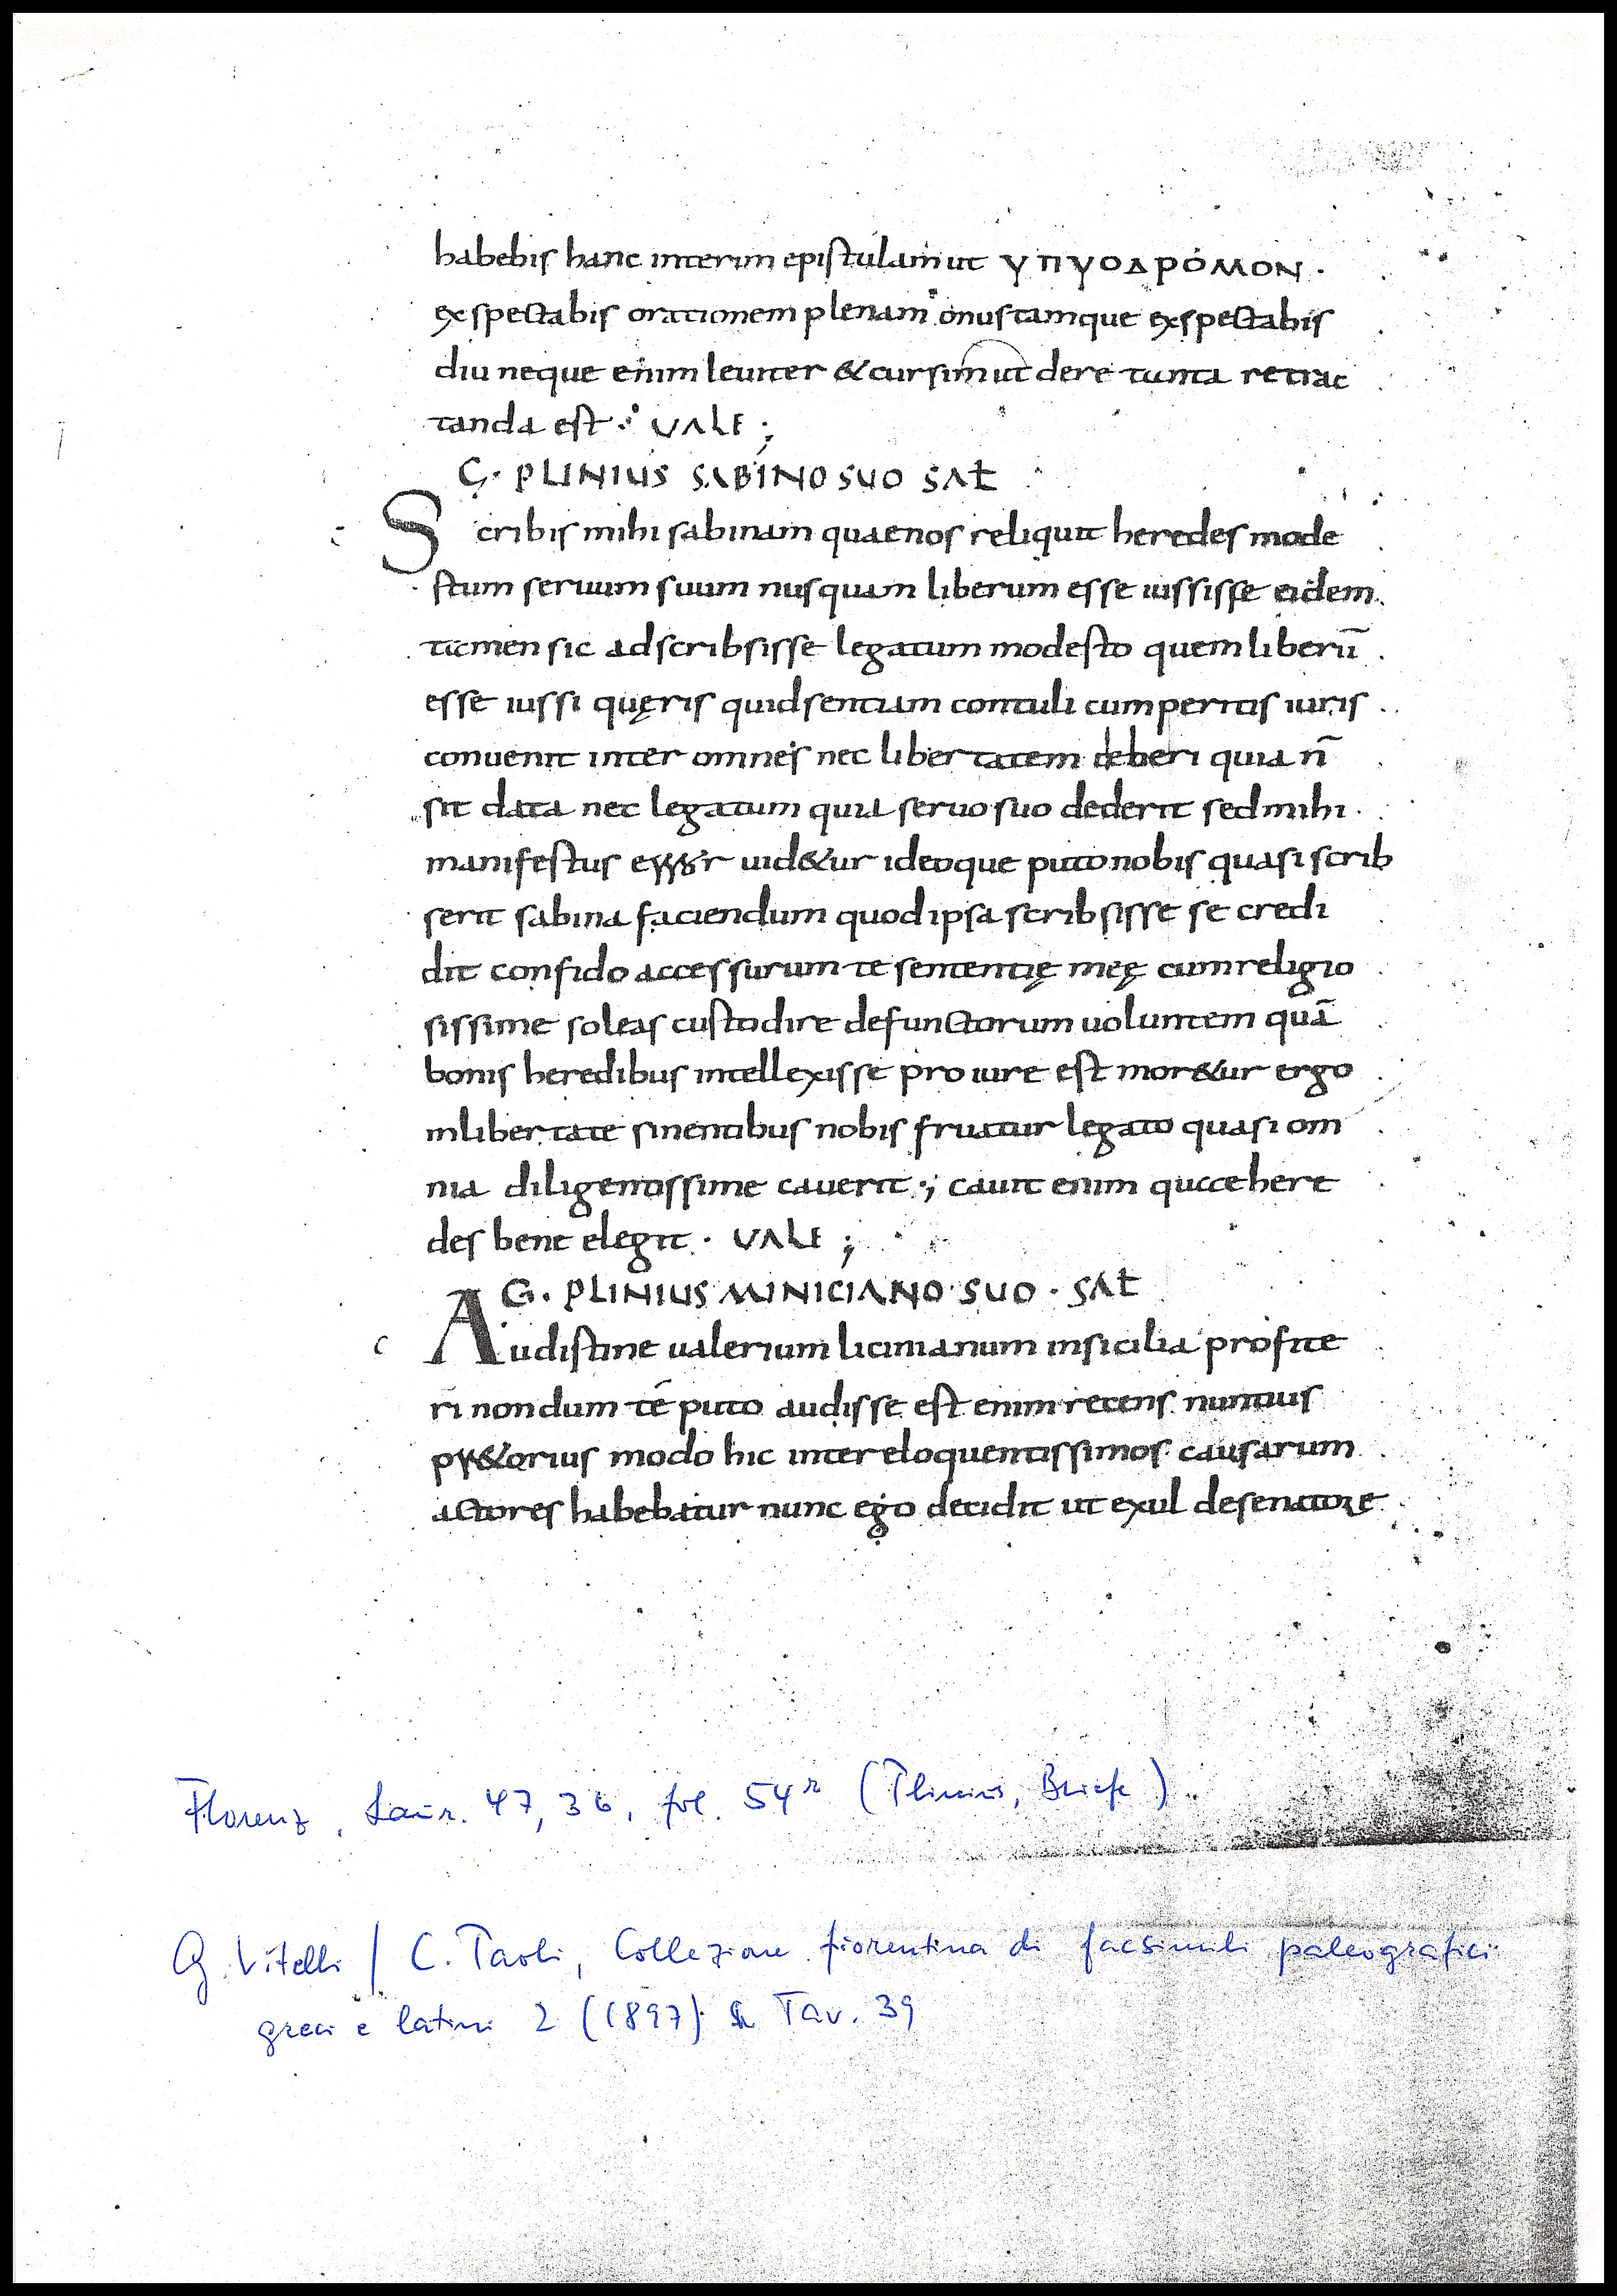 habebis hanc interim epistulam ut ΥΠΥΟΔΡΟΜΟΝ ·
exspectabis orationem plenam onustamque exspectabis
diu neque enim leuiter & cursim ut dere tanta retrac
tanda est · VALE ;
C · PLINIUS SABINO SUO SAŁ
Scribis mihi sabinam quae nos reliquit heredes mode
stum seruum suum nusquam liberum esse iussisse eidem
tamen sic adscribsisse legatum modesto quem liberū
esse iussi quęris quid sentiam contuli cum peritis iuris
conuenit inter omnes nec libertatem deberi quia n̄
sit data nec legatum quia seruo suo dederit sed mihi
manifestus error uid&ur ideoque puto nobis quasi scrib
serit sabina faciendum quod ipsa scribsisse se credi
dit confido accessurum te sententię meę cum religio
sissime soleas custodire defunctorum uoluntem quā
bonis heredibus intellexisse pro iure est mor&ur ergo
in libertate sinentibus nobis fruatur legato quasi om
nia diligentissime cauerit ·; cauit enim quae here
des bene elegit · VALE ;
G · PLINIUS MINICIANO SUO · SAŁ
Audistine ualerium licinianum in sicilia profite
ri nondum tē puto audisse est enim recens nuntius
pr&orius modo hic inter eloquentissimos causarum
actores habebatur nunc ego decidit ut exul de senatore
Florenz, Laur. 47, 36, fol. 54r (Plinius, Briefe)
G. Vitelli / C. Paoli, Collezione fiorentina di facsimili paleografici
greci e latini 2 (1897) Tav. 39